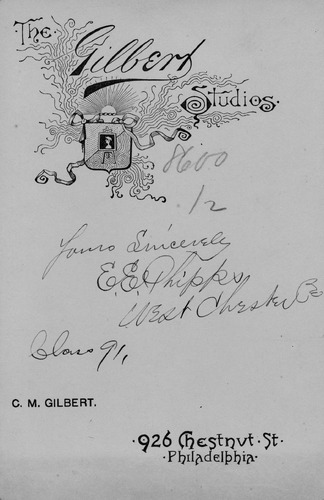 The
Gilbert
Studios.
8600
./2
Yours Sincerely
E.E. Phipps
West Chester Pa
Class 91,
C. M. GILBERT.
926 Chestnut St.
Philadelphia.